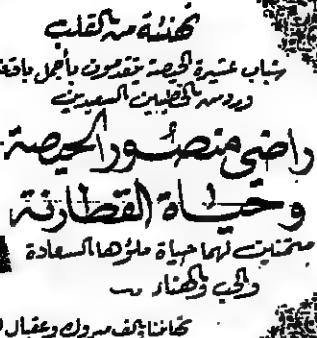 تهنئة من القلب
شباب عشيرة الحيصة يتقدمون بأجمل باقة
ورد من الخطيبين السعيدين
راضي منصور الحيصة
وحياة القطارنة
متمنين لهما حياة ملؤها السعادة
والحب والهناء
تهانينا ألف مبروك وعقبال